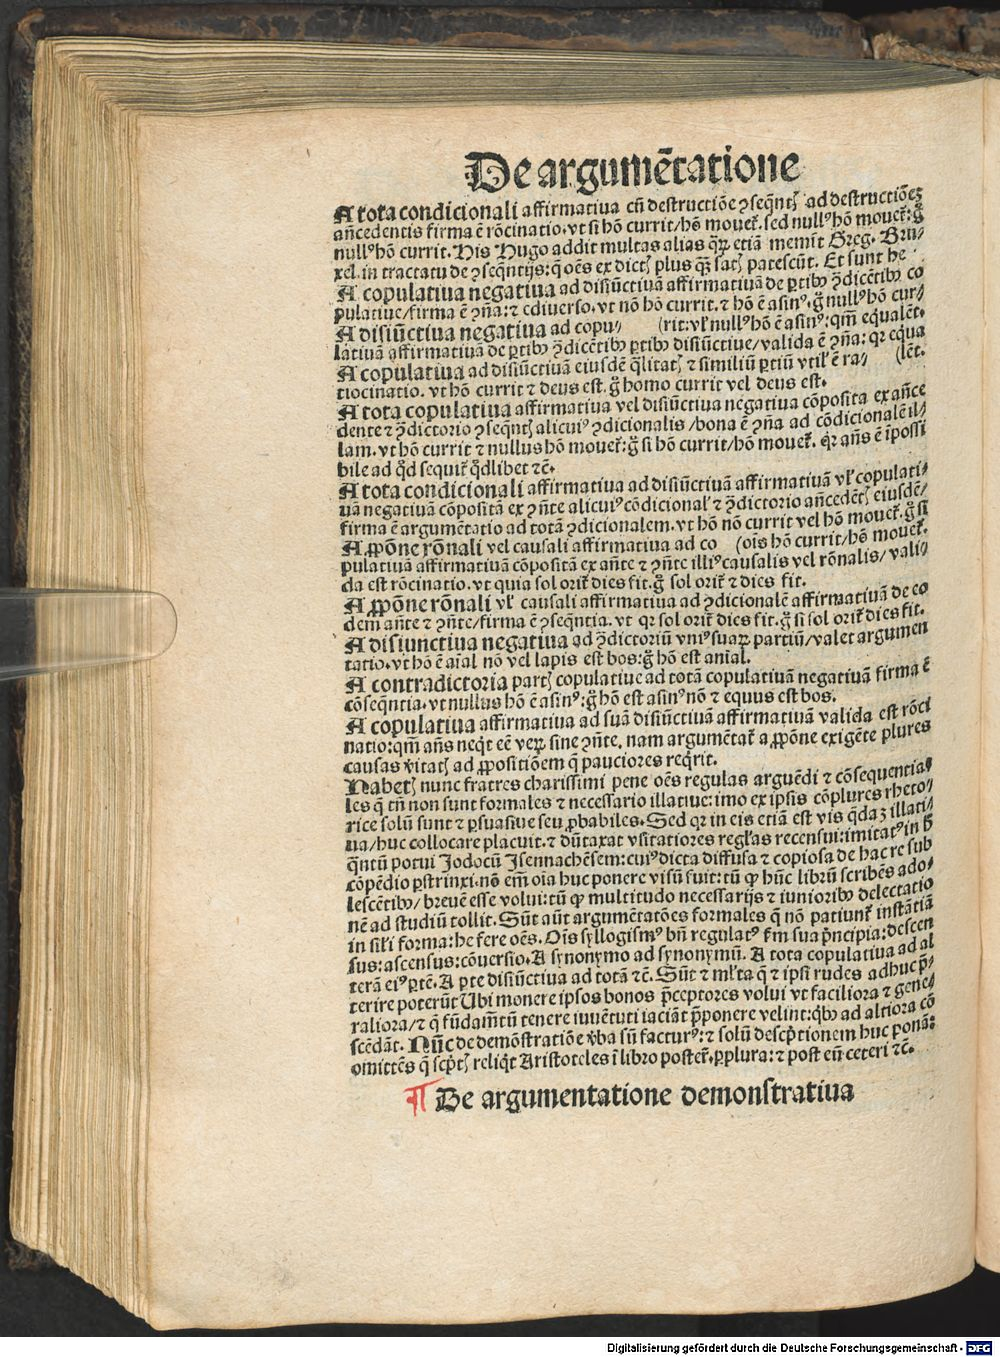 De argumētatione
A tota condicionali affirmatiua cū destructiōe ꝯseq̄ntꝭ ad destructiōeꝫ
an̄cedentis firma ē rōcinatio. vt si hō currit/hō mouet̉. sed nullꝰ hō mouet̉: g̊
nullꝰ hō currit. His Hugo addit multas alias qꝝ etiā memīt Greg. Bru/
xel. in tractatu de ꝯseq̄ntijs: q̄ oēs ex dictꝭ plus qꝫ satꝭ patescūt. Et sunt he
A copulatiua negatiua ad disiūctiuā affirmatiuā de ꝑtibꝰ ꝯ̄dicētibꝰ co
pulatiue/firma ē ꝯn̄a: ⁊ ediuerso. vt nō hō currit. ⁊ hō ē asinꝰ. g̊ nullꝰ hō cur/
A disiūctiua negatiua ad copu/ (rit: vel nullꝰ hō ē asinꝰ: qm̄ equalēt.
latiuā affirmatiuā de ꝑtibꝰ ꝯ̄dicētibꝰ ꝑtibꝰ disiūctiue/valida ē ꝯn̄a: qꝛ equa
A copulatiua ad disiūctiuā eiusdē q̄litatꝭ ⁊ similiū ꝑtiū vtil' ē ra/ (lēt.
tiocinatio. vt hō currit ⁊ deus est. g̊ homo currit vel deus est.
A tota copulatiua affirmatiua vel disiūctiua negatiua cōposita ex an̄ce
dente ⁊ ꝯ̄dictorio ꝯseq̄ntꝭ alicuiꝰ ꝯdicionalis/bona ē ꝯn̄a ad cōdicionalē il/
lam. vt hō currit ⁊ nullus hō mouet̉: g̊ si hō currit/hō mouet̉. qꝛ an̄s ē īpossi
bile ad qd̄ sequit̉ qd̄libet ⁊c̄.
A tota condicionali affirmatiua ad disiūctiuā affirmatiuā vel copulati/
uā negatiuā cōpositā ex ꝯn̄te alicuiꝰ cōdicional' ⁊ ꝯ̄dictorio an̄cedētꝭ eiusdē/
firma ē argumētatio ad totā ꝯdicionalem. vt hō nō currit vel hō mouet̉. g̊ si
A ꝓpōne rōnali vel causali affirmatiua ad co (ois hō currit/hō mouet̉.
pulatiuā affirmatiuā cōpositā ex an̄te ⁊ ꝯn̄te illiꝰ causalis vel rōnalis/vali/
da est rōcinatio. vt quia sol orit̉ dies fit. g̊ sol orit̉ ⁊ dies fit.
A ꝓpōne rōnali vel causali affirmatiua ad ꝯdicionalē affirmatiuā de eo
dem an̄te ⁊ ꝯn̄te/firma ē ꝯseq̄ntia. vt qꝛ sol orit̉ dies fit. g̊ si sol orit̉ dies fit.
A disiunctiua negatiua ad ꝯ̄dictoriū vniꝰ suaꝝ partiū/valet argumen
tatio. vt hō ē aīal nō vel lapis est bos: g̊ hō est anīal.
A contradictoria partꝭ copulatiue ad totā copulatiuā negatiuā firma ē
cōseq̄ntia. vt nullus hō ē asinꝰ: g̊ hō est asinꝰ nō ⁊ equus est bos.
A copulatiua affirmatiua ad suā disiūctiuā affirmatiuā valida est rōci
natio: qm̄ an̄s neqt̄ eē veꝝ sine ꝯn̄te. nam argumētat̉ a ꝓpōne exigēte plures
causas v̄itatꝭ ad ꝓpositiōem q̄ pauciores reqr̄it.
Habetꝭ nunc fratres charissimi pene oēs regulas arguēdi ⁊ cōsequentia/
les q̄ tn̄ non sunt formales ⁊ necessario illatiue: imo ex ipsis cōplures rheto/
rice solū sunt ⁊ ꝑsuasiue seu ꝓbabiles. Sed qꝛ in eis etiā est vis q̄daꝫ illati/
ua/huc collocare placuit. ⁊ dūtaxat vsitatiores regl'as recensui: imitatꝰ in h̄
q̄ntū potui Jodocū Isennachēsem: cuiꝰ dicta diffusa ⁊ copiosa de hac re sub
cōpēdio ꝑstrinxi. nō em̄ oīa huc ponere visū fuit: tū ꝙ hūc librū scribēs ado/
lescētibꝰ/breuē esse volui: tū ꝙ multitudo necessarijs ⁊ iunioribꝰ delectatio
nē ad studiū tollit. Sūt aūt argumētatōes formales q̄ nō patiunt̉ instātiā
in sil'i forma: he fere oēs. Oīs syllogismꝰ bn̄ regulatꝰ fm̄ sua p̄ncipia: descen
sus: ascensus: cōuersio. A synonymo ad synonymū. A tota copulatiua ad al
terā eiꝰ ꝑtē. A ꝑte disiūctiua ad totā ⁊c̄. Sūt ⁊ ml'ta q̄ ⁊ ipsi rudes adhuc p̄/
terire poterūt Vbi monere ipsos bonos p̄ceptores volui vt faciliora ⁊ gene/
raliora/⁊ q̄ fūdam̄tū tenere iuuētuti iaciāt p̄ponere velint: qb̄ꝰ ad altiora cō
scēdāt. Nūc de demōstratiōe v̄ba sū facturꝰ: ⁊ solū descp̄tionem huc ponā:
omittēs q̄ scp̄tꝭ reliqt̄ Aristoteles ī libro poster̉. ꝑplura: ⁊ post eū ceteri ⁊c̄.
¶ De argumentatione demonstratiua
Digitalisierung gefördert durch die Deutsche Forschungsgemeinschaft - DFG